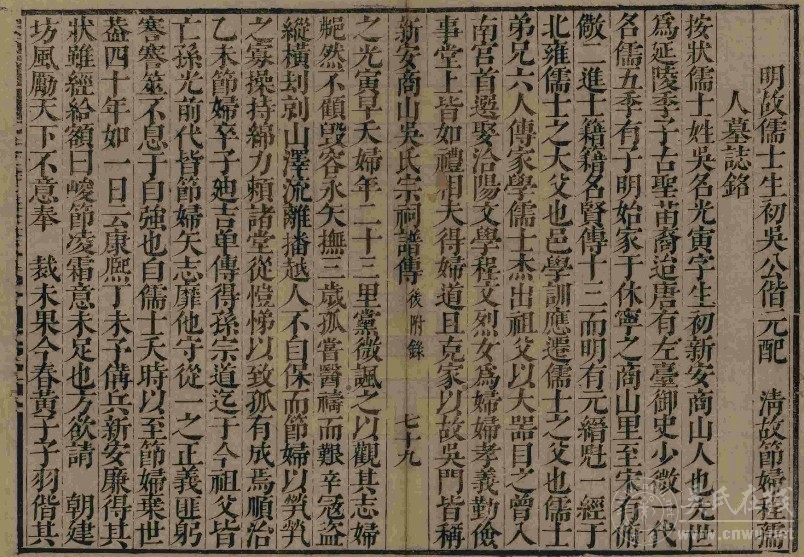 明故儒士生初吳公偕元配　清故節婦程孺
人墓誌銘
按狀儒士姓吳名光寅字生初新安商山人也先世
爲延陵季子古聖苗裔迨唐有左臺御史少微一代
名儒五季有于明始家于休寧之商山里至宋有俯
儆二進士籍籍名賢傳十三而明有元縉魁一經于
北雍儒士之大父也邑學訓應遷儒士之父也儒士
弟兄六人傳家學儒士杰出祖父以大器目之曾人
南宮首選娶洽陽文學程文烈女爲婦婦孝義勤儉
事堂上皆如禮相夫得婦道且克家以故吳門皆稱
新安商山吳氏宗祠譜傳　後附錄　七十九
之光寅早夭婦年二十三里黨微諷之以觀其志婦
艴然不顧毀容永矢撫三歲孤嘗醫禱而艱辛寇盜
縱橫刦剥山澤流離播越人不自保而節婦以煢煢
之寡操持綿力賴諸堂從愷悌以致孤有成焉順治
乙未節婦卒子廸吉單傳得孫宗道迄于今祖父皆
亡孫光前代皆節婦矢志靡他守從一之正義匪躬
蹇蹇並不息于自強也自儒士夭時以至節婦棄世
葢四十年如一日云康熈丁未予備兵新安廉得其
狀雖經給額曰峻節凌霜意未足也方欲請　朝建
坊風勵天下不意奉　裁未果今春黃子子羽偕其
吳氏在线
cnwu.net